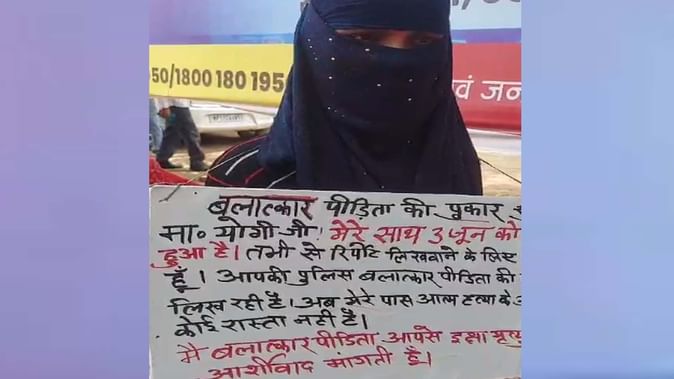 50/1800 180 195
वं जन
बलात्कार पीड़िता की पूकार
मा० योगी जी! मेरे साथ 3 जून को
हुआ है। तभी से रिर्पोट लिखवाने के लिए
हूँ। आपकी पुलिस बलात्कार पीड़िता की
लिख रही है। अब मेरे पास आत्म हत्या के
कोई रास्ता नहीं है।
मै बलात्कार पीड़िता आपसे इक्षा मृत्यु
आर्शीवाद मांगती हूँ।